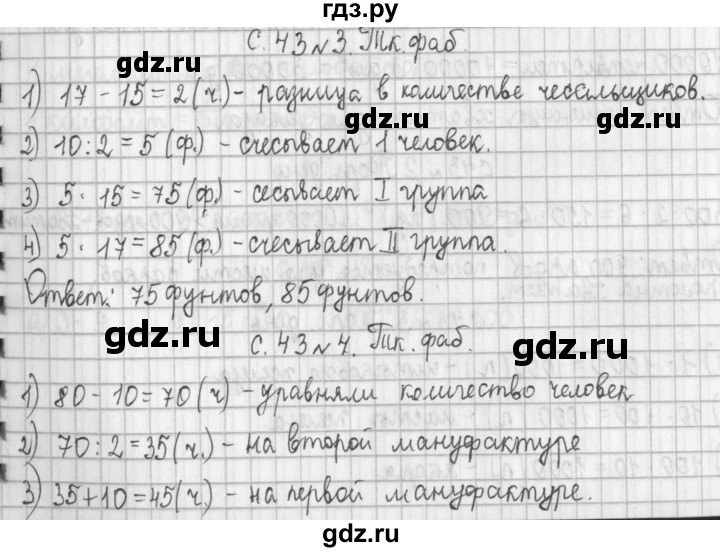 гдз.ру
с. 43 № 3. Тк. фаб.
gdz.ru gdz.ru
1) 17 - 15 = 2 (ч.) - разница в количестве чесальщиков.
2) 10 : 2 = 5 (ф.) - счесывает 1 человек.
3) 5 · 15 = 75 (ф.) - сесывает I группа
gdz.ru gdz.ru
4) 5 · 17 = 85 (ф.) - счесывает II группа.
Ответ: 75 фунтов, 85 фунтов.
gdz.ru gdz.ru
с. 43 № 4. Тк. фаб.
1) 80 - 10 = 70 (ч) - уравняли количество человек
2) 70 : 2 = 35 (ч.) - на второй мануфактуре
gdz.ru gdz.ru
3) 35 + 10 = 45 (ч.) - на первой мануфактуре.
gdz.ru